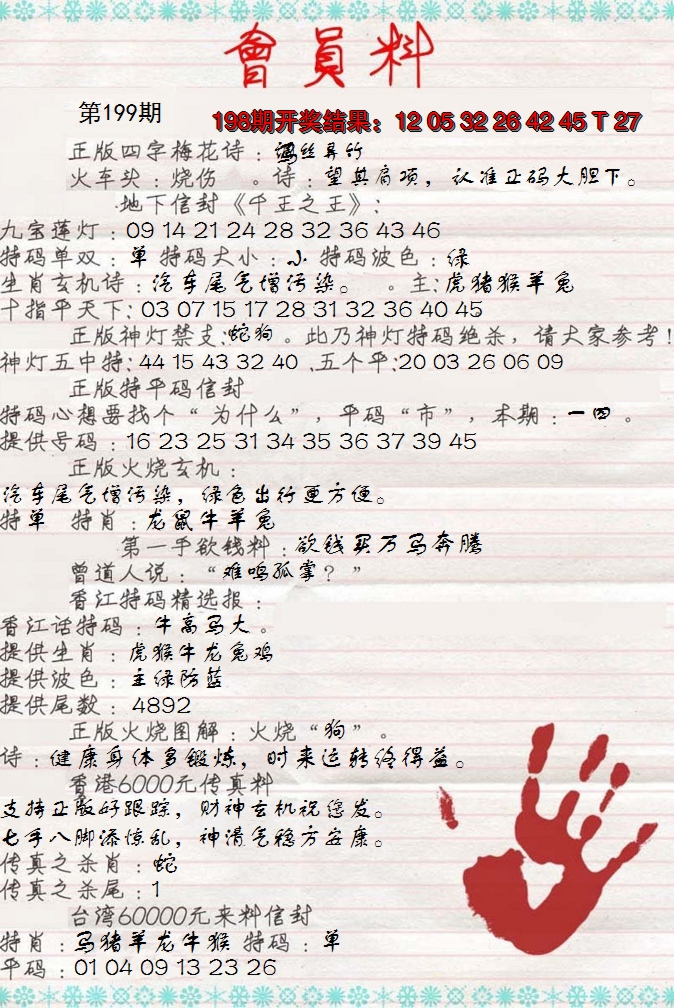 會員料
第199期
198期开奖结果：12 05 32 26 42 45 T 27
正版四字梅花诗：
火车头：烧伤 。诗：望其肩项，认准正码大胆下。
地下信封《千王之王》：
九宝莲灯：09 14 21 24 28 32 36 43 46
特码单双：单 特码大小：小 特码波色：绿
生肖玄机诗：汽车尾气增污染。 。主：虎猪猴羊兔
十指平天下：03 07 15 17 28 31 32 36 40 45
正版神灯禁支：蛇狗。此乃神灯特码绝杀，请大家参考！
神灯五中特：44 15 43 32 40 .五个平：20 03 26 06 09
正版特平码信封
特码心想要找个“为什么”，平码“市”，本期：一四。
提供号码：16 23 25 31 34 35 36 37 39 45
正版火烧玄机：
汽车尾气增污染，绿色出行更方便。
特单 特肖：龙鼠牛羊兔
第一手欲钱料：欲钱买万马奔腾
曾道人说：“难鸣孤掌？”
香江特码精选报：
香江话特码：牛高马大。
提供生肖：虎猴牛龙兔鸡
提供波色：主绿防蓝
提供尾数：4892
正版火烧图解：火烧“狗”。
诗：健康身体多锻炼，时来运转终得益。
香港6000元传真料
支持正版好跟踪，财神玄机祝您发。
七手八脚添惊乱，神清气稳方安康。
传真之杀肖：蛇
传真之杀尾：1
台湾60000元来料信封
特肖：马猪羊龙牛猴 特码：单
平码：01 04 09 13 23 26